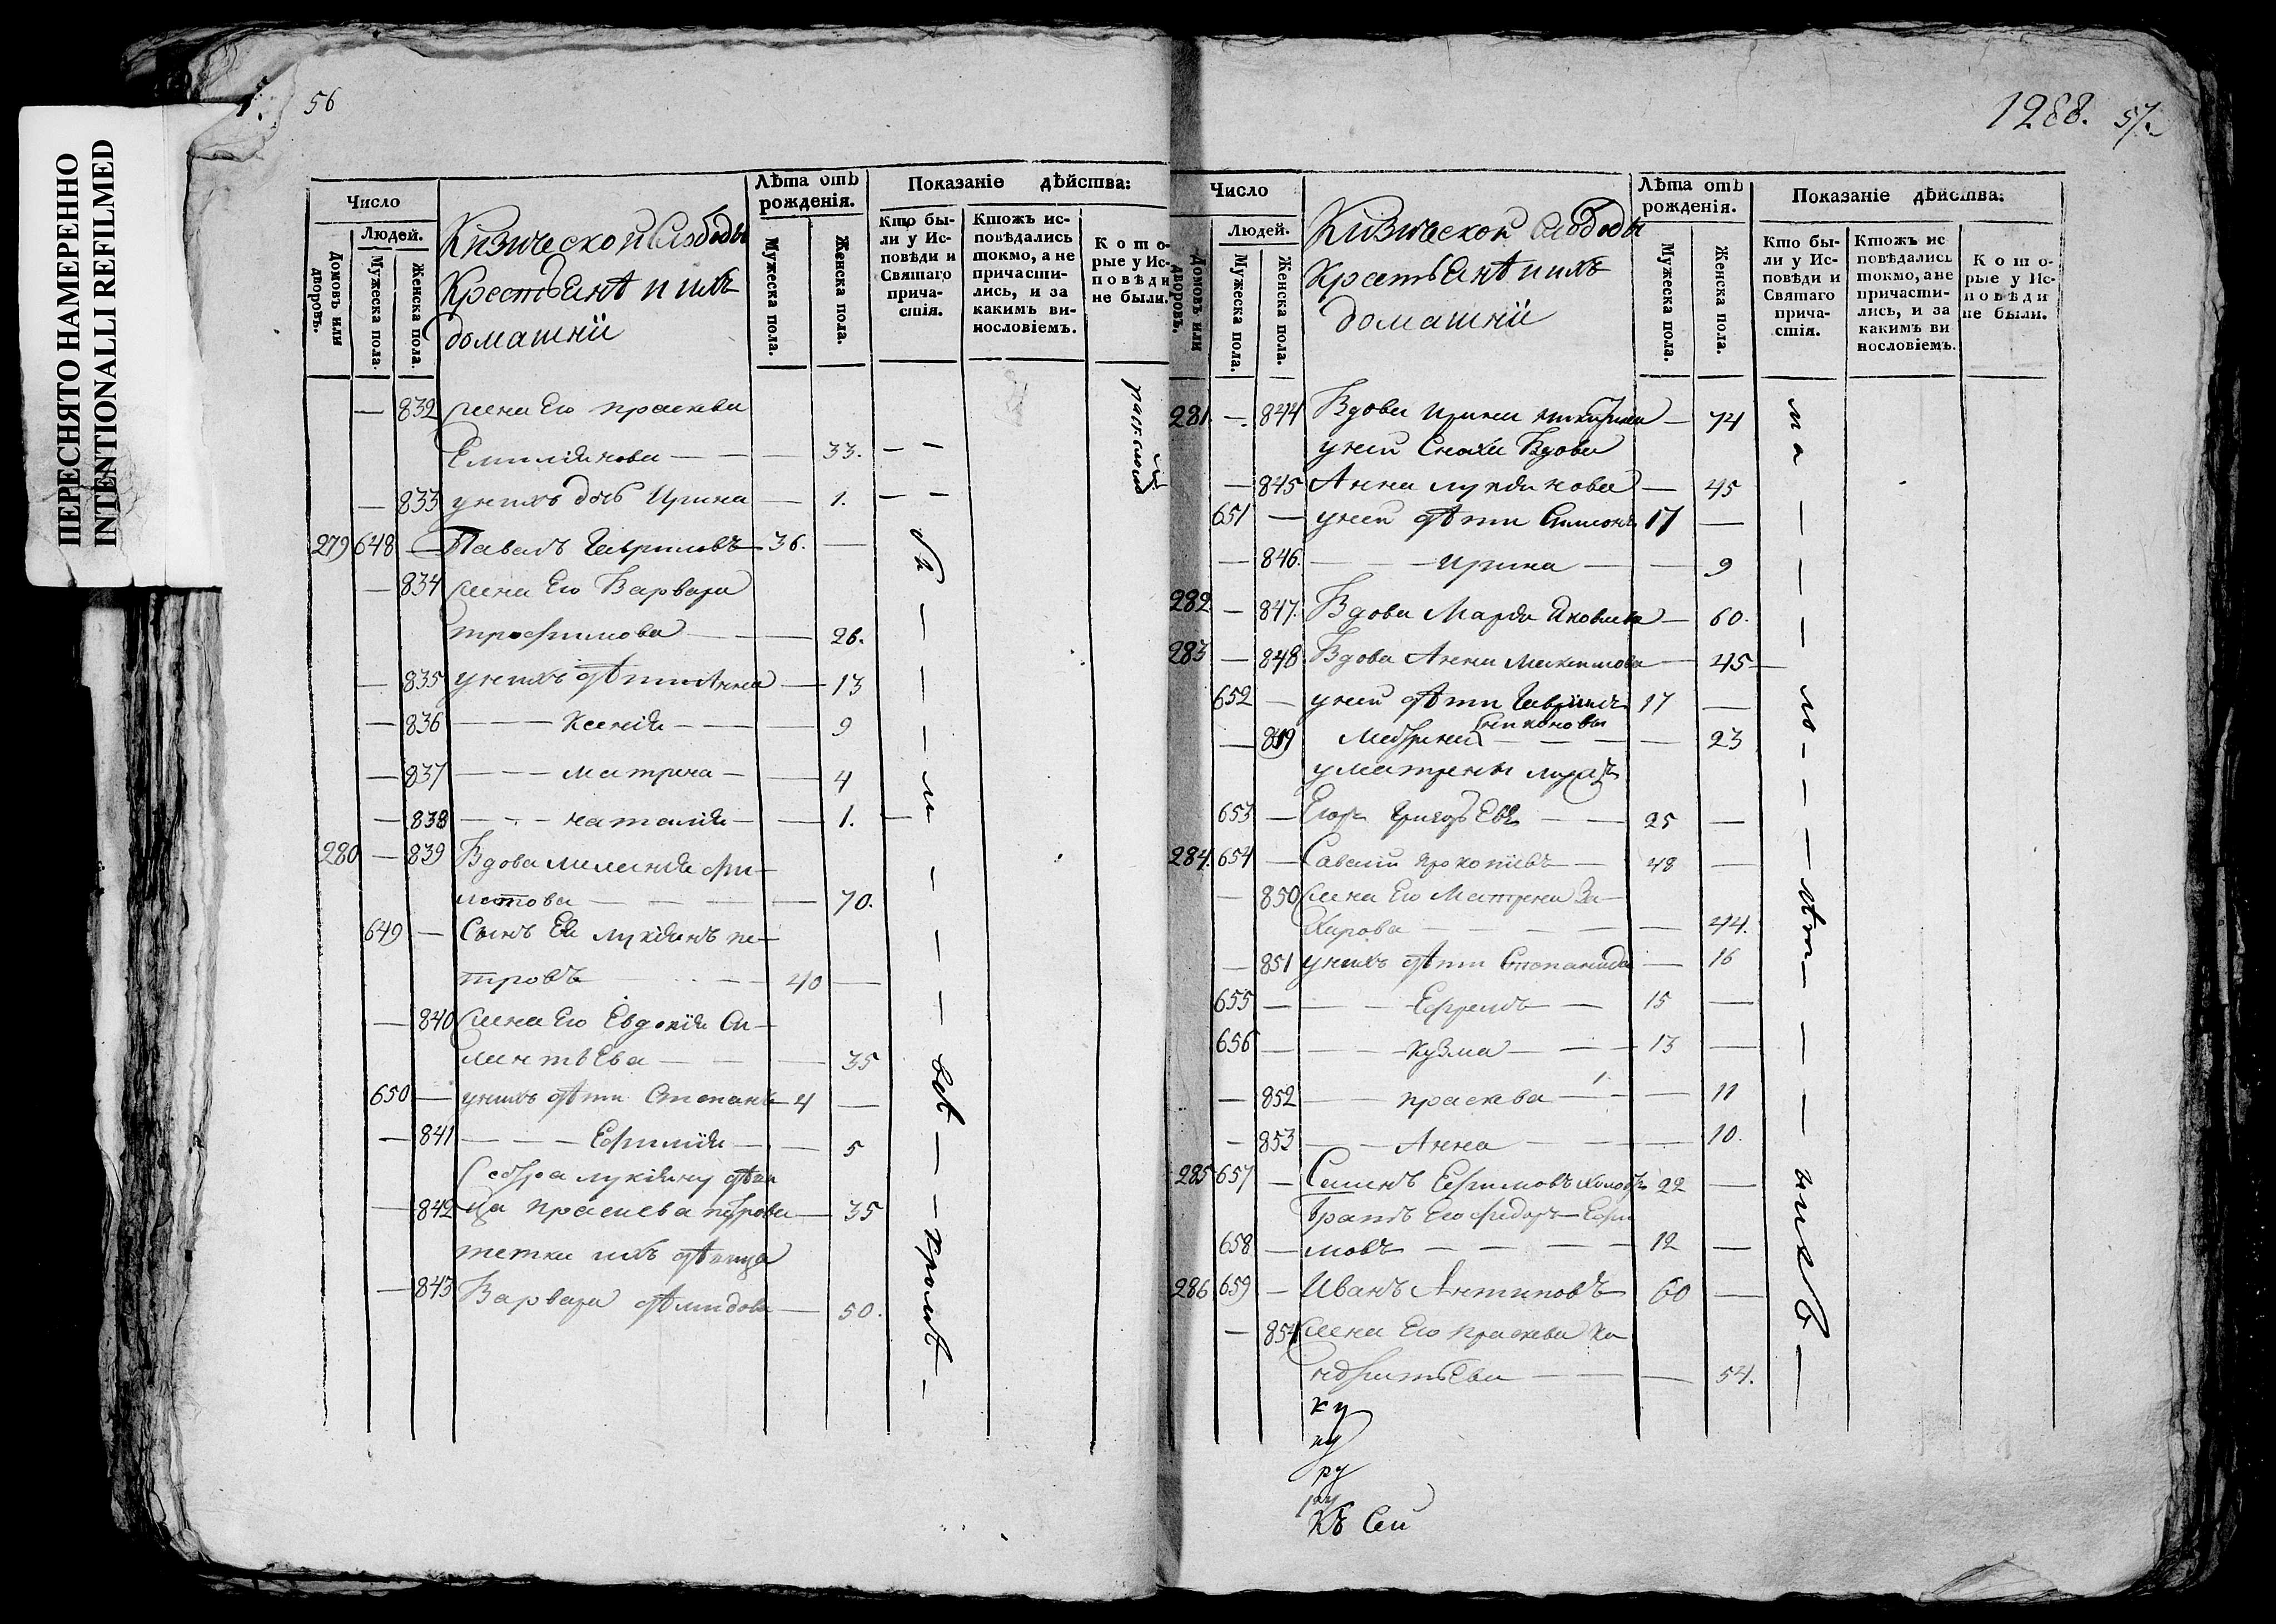 ПЕРЕСНЯТО НАМЕРЕННО
INTENTIONALLI REFILMED
56
Число
Людей.
Домовъ или дворовъ.
Мужеска пола.
Женска пола.
Кизической Слободы
Крестьянѣ и ихъ
домашнїи
Лѣта отъ рожденія.
Мужеска пола.
Женска пола.
Показаніе дѣйства:
Кто бы-
ли у Ис-
повѣди и
Святаго
прича-
стія.
Ктожъ ис-
повѣдались
токмо, а не
причасти-
лись, и за
какимъ ви-
нословіемъ.
Кото-
рые у Ис-
повѣди
не были.
— 832 жена Его праскева
Емилиянова — — — 33. — —
— 833 у нихъ дочь Ирина — 1. — —
279 648 — Павелъ Гавриловъ — 36. —
— 834 жена Его Варвара
трофимова — — 26.
— 835 у нихъ дѣти Анна — 13
— 836 — — — Ксенїя — — 9
— 837 — — — матрена — — 4
— 838 — — — наталїя — — 1. —
280 — 839 Вдова меланїя фи-
истова — — — — 70.
649 — Сынъ Ея лукїянъ пе-
тровъ — — 40 —
— 840 жена Его Евдокїя Си-
лантьЕва — — — 35
650 — у нихъ дѣти Степанъ — 4 —
— 841 — — — Ефимїя — — 5
Сестра лукїяну дѣви
— 842 ца праскева петрова — 35
тетка ихъ дѣвица
— 843 Варвара дѣмидова — 50.
бы — — — ли — — — всѣ — — Кромѣ —
1288. 57.
Число
Людей.
Домовъ или дворовъ.
Мужеска пола.
Женска пола.
Кизической Слободы
Крестьянѣ и ихъ
домашнїи
Лѣта отъ рожденія.
Мужеска пола.
Женска пола.
Показаніе дѣйства:
Кто бы-
ли у Ис-
повѣди и
Святаго
прича-
стія.
Ктожъ ис
повѣдались
токмо, а не
причасти-
лись, и за
какимъ ви
нословіемъ.
Кото-
рые у Ис-
повѣди
не были.
281. — 844 Вдова Ирина — 74
у ней Сноха Вдова
— 845 Анна лукиянова — 45
651 — у ней дѣти Симонъ 17 —
— 846. — — — Ирина — — 9
282 — 847. Вдова Марья Яковлева — 60.
283 — 848 Вдова Анна Максимова — 45 —
652 — у ней дѣти Гаврила 17 —
никоновы
— 849 Матрена — — — 23
у матрены мужъ
653 — Егоръ ГригорьЕвъ — — 25 —
284. 654 — Савелїй прокопїевъ — 48 —
— 850 жена Его Матрена За-
харова — — — — 44.
— 851 у нихъ дѣти Степанида — 16
655 — — — Ефремъ — 15 —
656 — — — Кузма — — 13 —
— 852 — — праскева — — 11
— 853 — — Анна — — 10.
285 657 — Семенъ Ефимовъ 22 —
братъ Его федоръ — Ефи
658 — мовъ — — — — 12 —
286 659 — Иванъ Антиповъ 60 —
— 854 жена Его праскева Ко
ндратьЕва — — — 54.
ку
ну
ру
ку
Къ Сей